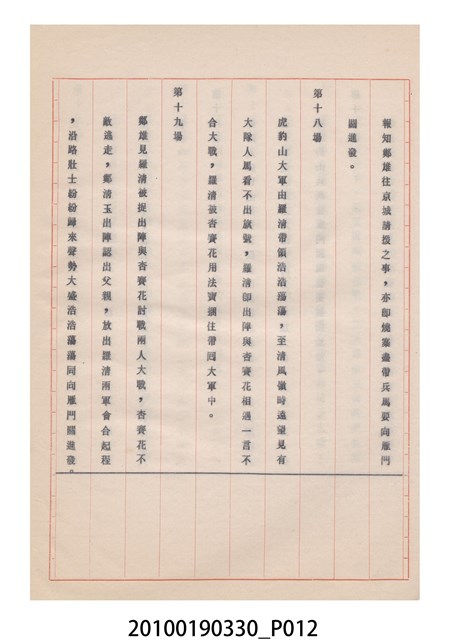 報知鄭雄往京誠請援之事，亦即燒寨盡帶兵馬要向雁門
關進發。
第十八場
虎豹山大軍由羅清帶領浩浩蕩蕩，至清風嶺時遠望見有
大隊人馬看不出旗號，羅清卽出陣與杏賽花相遇一言不
合大戰，羅清被杏賽花用法寶捆住帶囘大軍中。
第十九場
鄭雄見羅清被捉出陣與杏賽花討戰兩人大戰，杏賽花不
敵逃走，鄭清玉出陣認出父親，放出羅清兩軍會合起程
，沿路壯士紛紛歸來聲勢大盛浩浩蕩蕩同向雁門關進發。
20100190330_P012